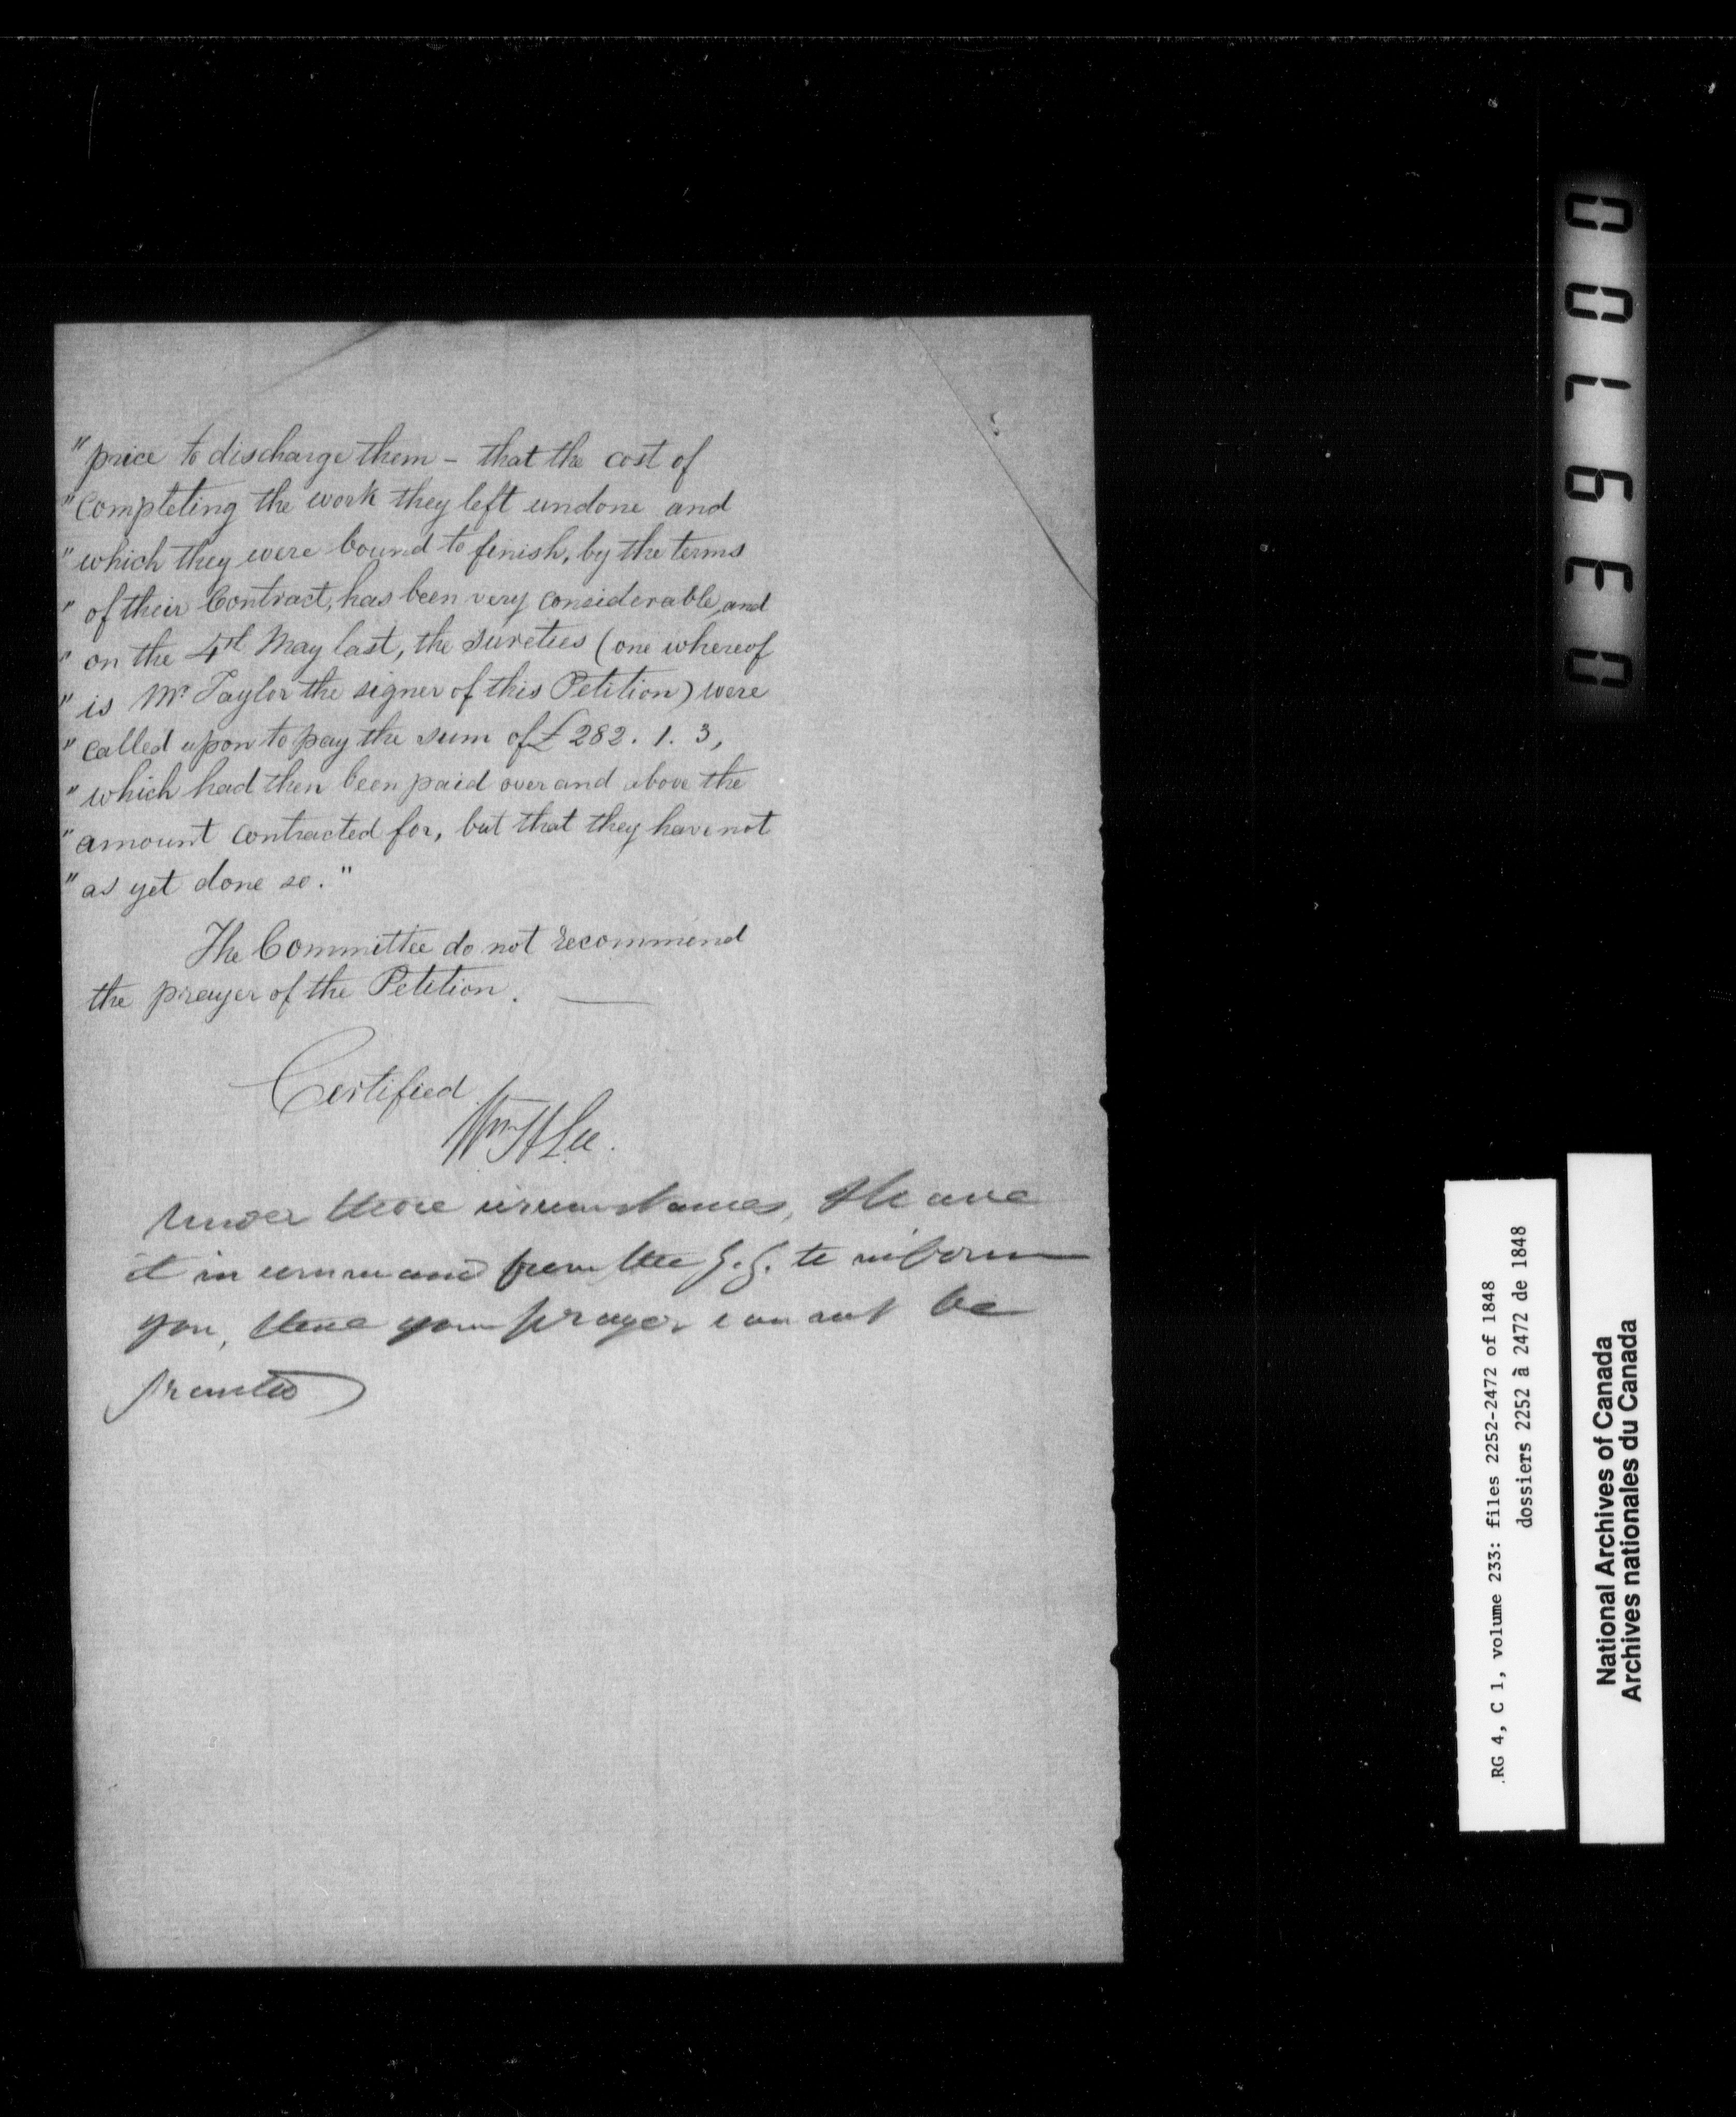 "price to discharge them - that the cost of
"completing the work they left undone and
"which they were bound to finish, by the terms
"of their Contract, has been very considerable, and
"on the 4th May last, the sureties (one whereof
"is Mr Taylor the signer of this Petition) were
"called upon to pay the sum of £282. 1. 3,
"which had then been paid over and above the
"amount contracted for, but that they have not
"as yet done so."
The Committee do not recommend
the prayer of the Petition.
Certified
Wm H Lee.
Under these circumstances, I have
it in command from the G. G. to inform
you, that your prayer cannot be
granted
039700
RG 4, C 1, volume 233: files 2252-2472 of 1848
dossiers 2252 à 2472 de 1848
National Archives of Canada
Archives nationales du Canada